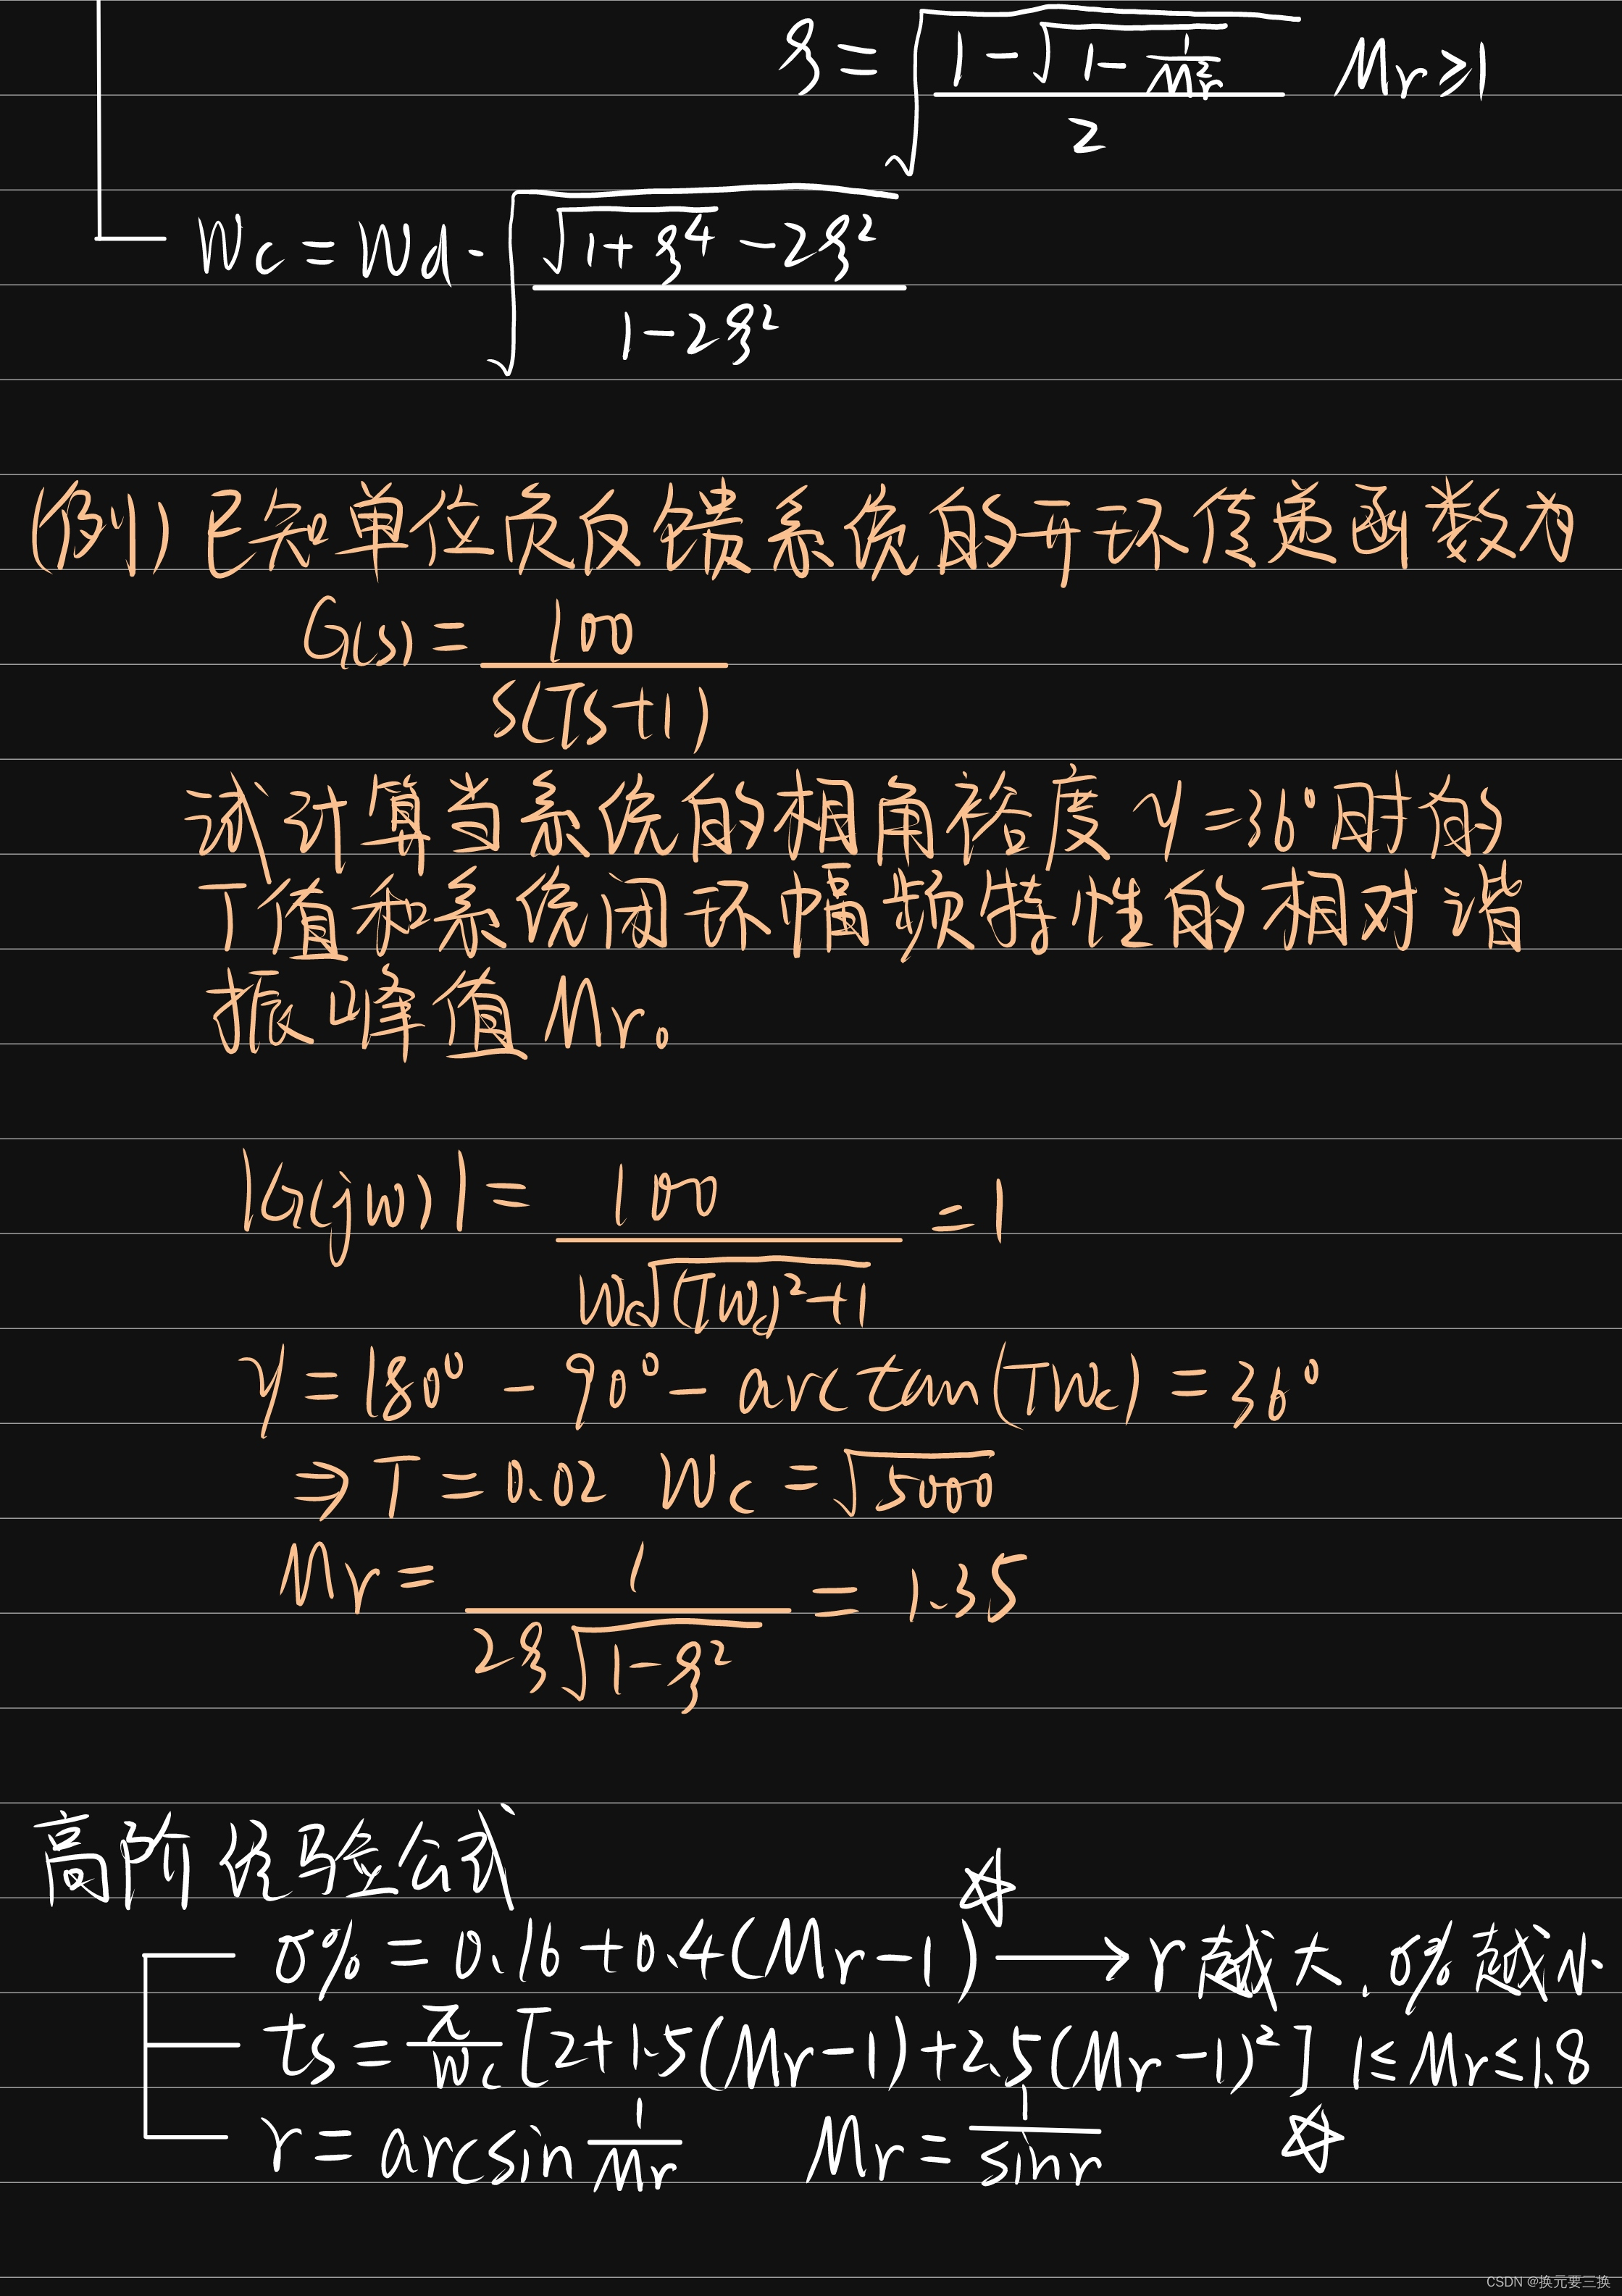 ξ = √((1-√(1-1/Mr²))/2) Mr≥1
Wc = Wd·√((√(1+ξ⁴) -2ξ²)/(1-2ξ²))
(例) 已知单位负反馈系统的开环传递函数为
G(s) = 100/(s(Ts+1))
试计算当系统的相角裕度 γ=36°时的
T值和系统闭环幅频特性的相对谐
振峰值Mr。
|G(jw)| = 100/(Wc√((TWc)²+1)) = 1
γ = 180° - 90° - arctan(TWc) = 36°
⇒ T = 0.02 Wc = √5000
Mr = 1/(2ξ√(1-ξ²)) = 1.35
高阶经验公式
σ% = 0.16 + 0.4(Mr-1) ☆ → r越大，σ%越小
ts = π/Wc [2+1.5(Mr-1)+2.5(Mr-1)²] 1≤Mr≤1.8
r = arcsin 1/Mr Mr = 1/sinr ☆
CSDN @换元要三换